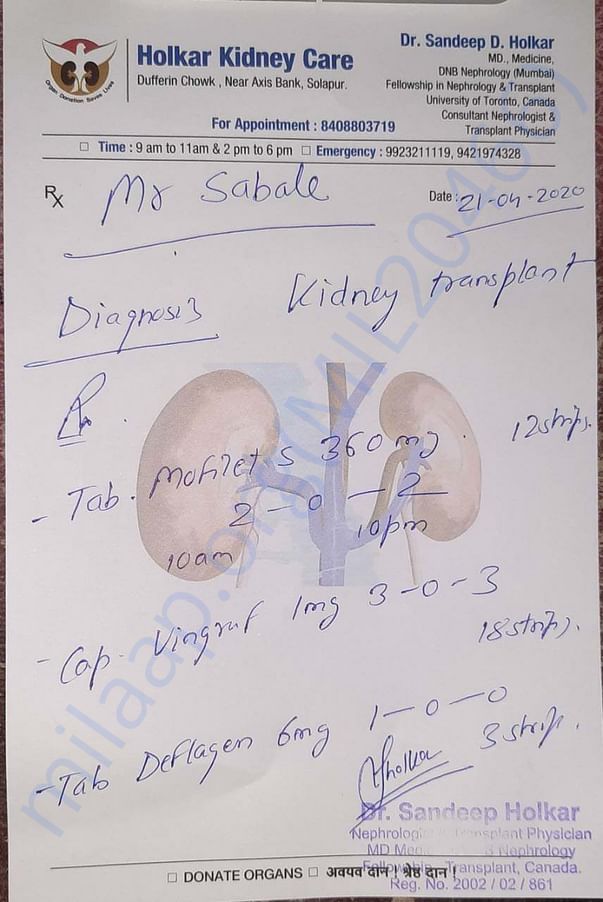 Organ Donation Saves Lives
Holkar Kidney Care
Dufferin Chowk , Near Axis Bank, Solapur.
Dr. Sandeep D. Holkar
MD., Medicine,
DNB Nephrology (Mumbai)
Fellowship in Nephrology & Transplant
University of Toronto, Canada
Consultant Nephrologist &
Transplant Physician
For Appointment : 8408803719
Time : 9 am to 11am & 2 pm to 6 pm Emergency : 9923211119, 9421974328
Rx Mr Sabale Date : 21-04-2020
Diagnosis Kidney transplant
Rx.
- Tab. Mofilet S 360 mg. 12 strips.
2 - 0 - 2
10am 10pm
- Cap. Vingraf 1mg 3-0-3
18 strips.
- Tab Deflagen 6mg 1-0-0
3 strip.
Holkar
Dr. Sandeep Holkar
Nephrologist & Transplant Physician
MD Med Nephrology
Fellowship Transplant, Canada.
Reg. No. 2002 / 02 / 861
DONATE ORGANS अवयव दान ! श्रेष्ठ दान !